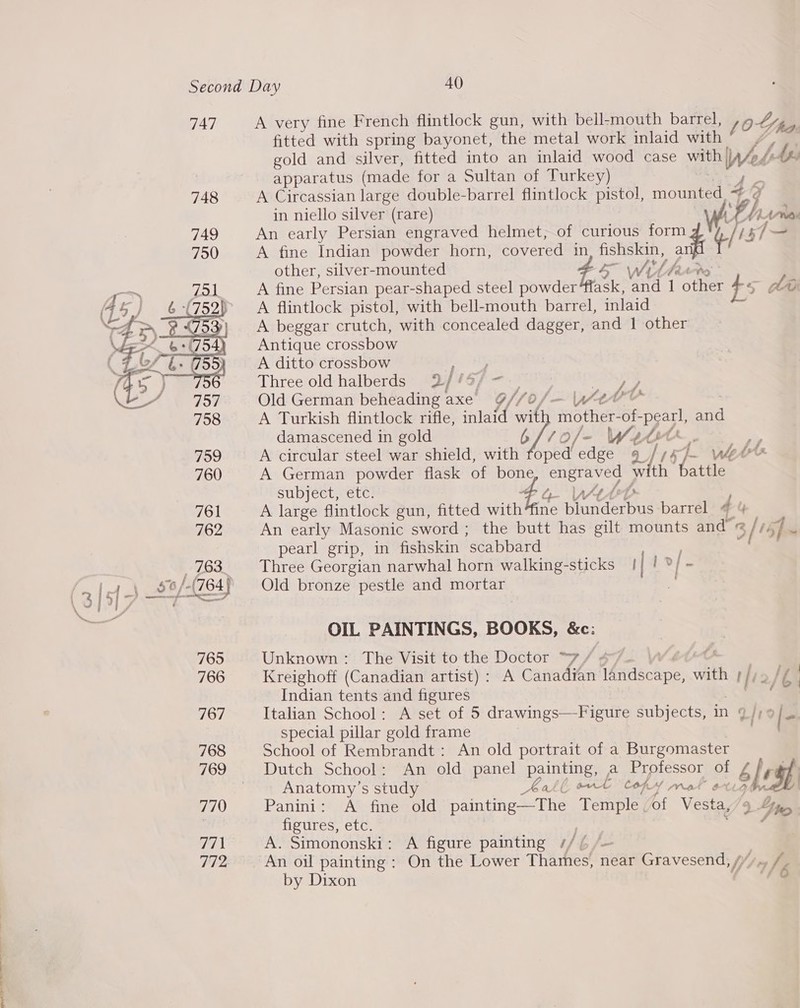 Second Day 40
747 A very fine French flintlock gun, with bell-mouth barrel,
fitted with spring bayonet, the metal work inlaid with
gold and silver, fitted into an inlaid wood case with
apparatus (made for a Sultan of Turkey)
748 A Circassian large double-barrel flintlock pistol, mounted
in niello silver (rare)
749 An early Persian engraved helmet, of curious form
750 A fine Indian powder horn, covered in fishskin, and 1
other, silver-mounted
751 A fine Persian pear-shaped steel powder flask, and 1 other
6 (752) A flintlock pistol, with bell-mouth barrel, inlaid
(753) A beggar crutch, with concealed dagger, and 1 other
6 (754) Antique crossbow
6 (755) A ditto crossbow
756 Three old halberds 2/15/-
757 Old German beheading axe
758 A Turkish flintlock rifle, inlaid with mother-of-pearl, and
damascened in gold 6/10/-
759 A circular steel war shield, with roped edge
760 A German powder flask of bone, engraved with battle
subject, etc.
761 A large flintlock gun, fitted with fine blunderbus barrel
762 An early Masonic sword; the butt has gilt mounts and
pearl grip, in fishskin scabbard
763 Three Georgian narwhal horn walking-sticks
(764) Old bronze pestle and mortar
OIL PAINTINGS, BOOKS, &c:
765 Unknown: The Visit to the Doctor
766 Kreighoff (Canadian artist): A Canadian landscape, with
Indian tents and figures
767 Italian School: A set of 5 drawings—Figure subjects, in
special pillar gold frame
768 School of Rembrandt: An old portrait of a Burgomaster
769 Dutch School: An old panel painting, a Professor of
Anatomy's study
770 Panini: A fine old painting—The Temple of Vesta,
figures, etc.
771 A. Simononski: A figure painting
772 An oil painting: On the Lower Thames, near Gravesend,
by Dixon